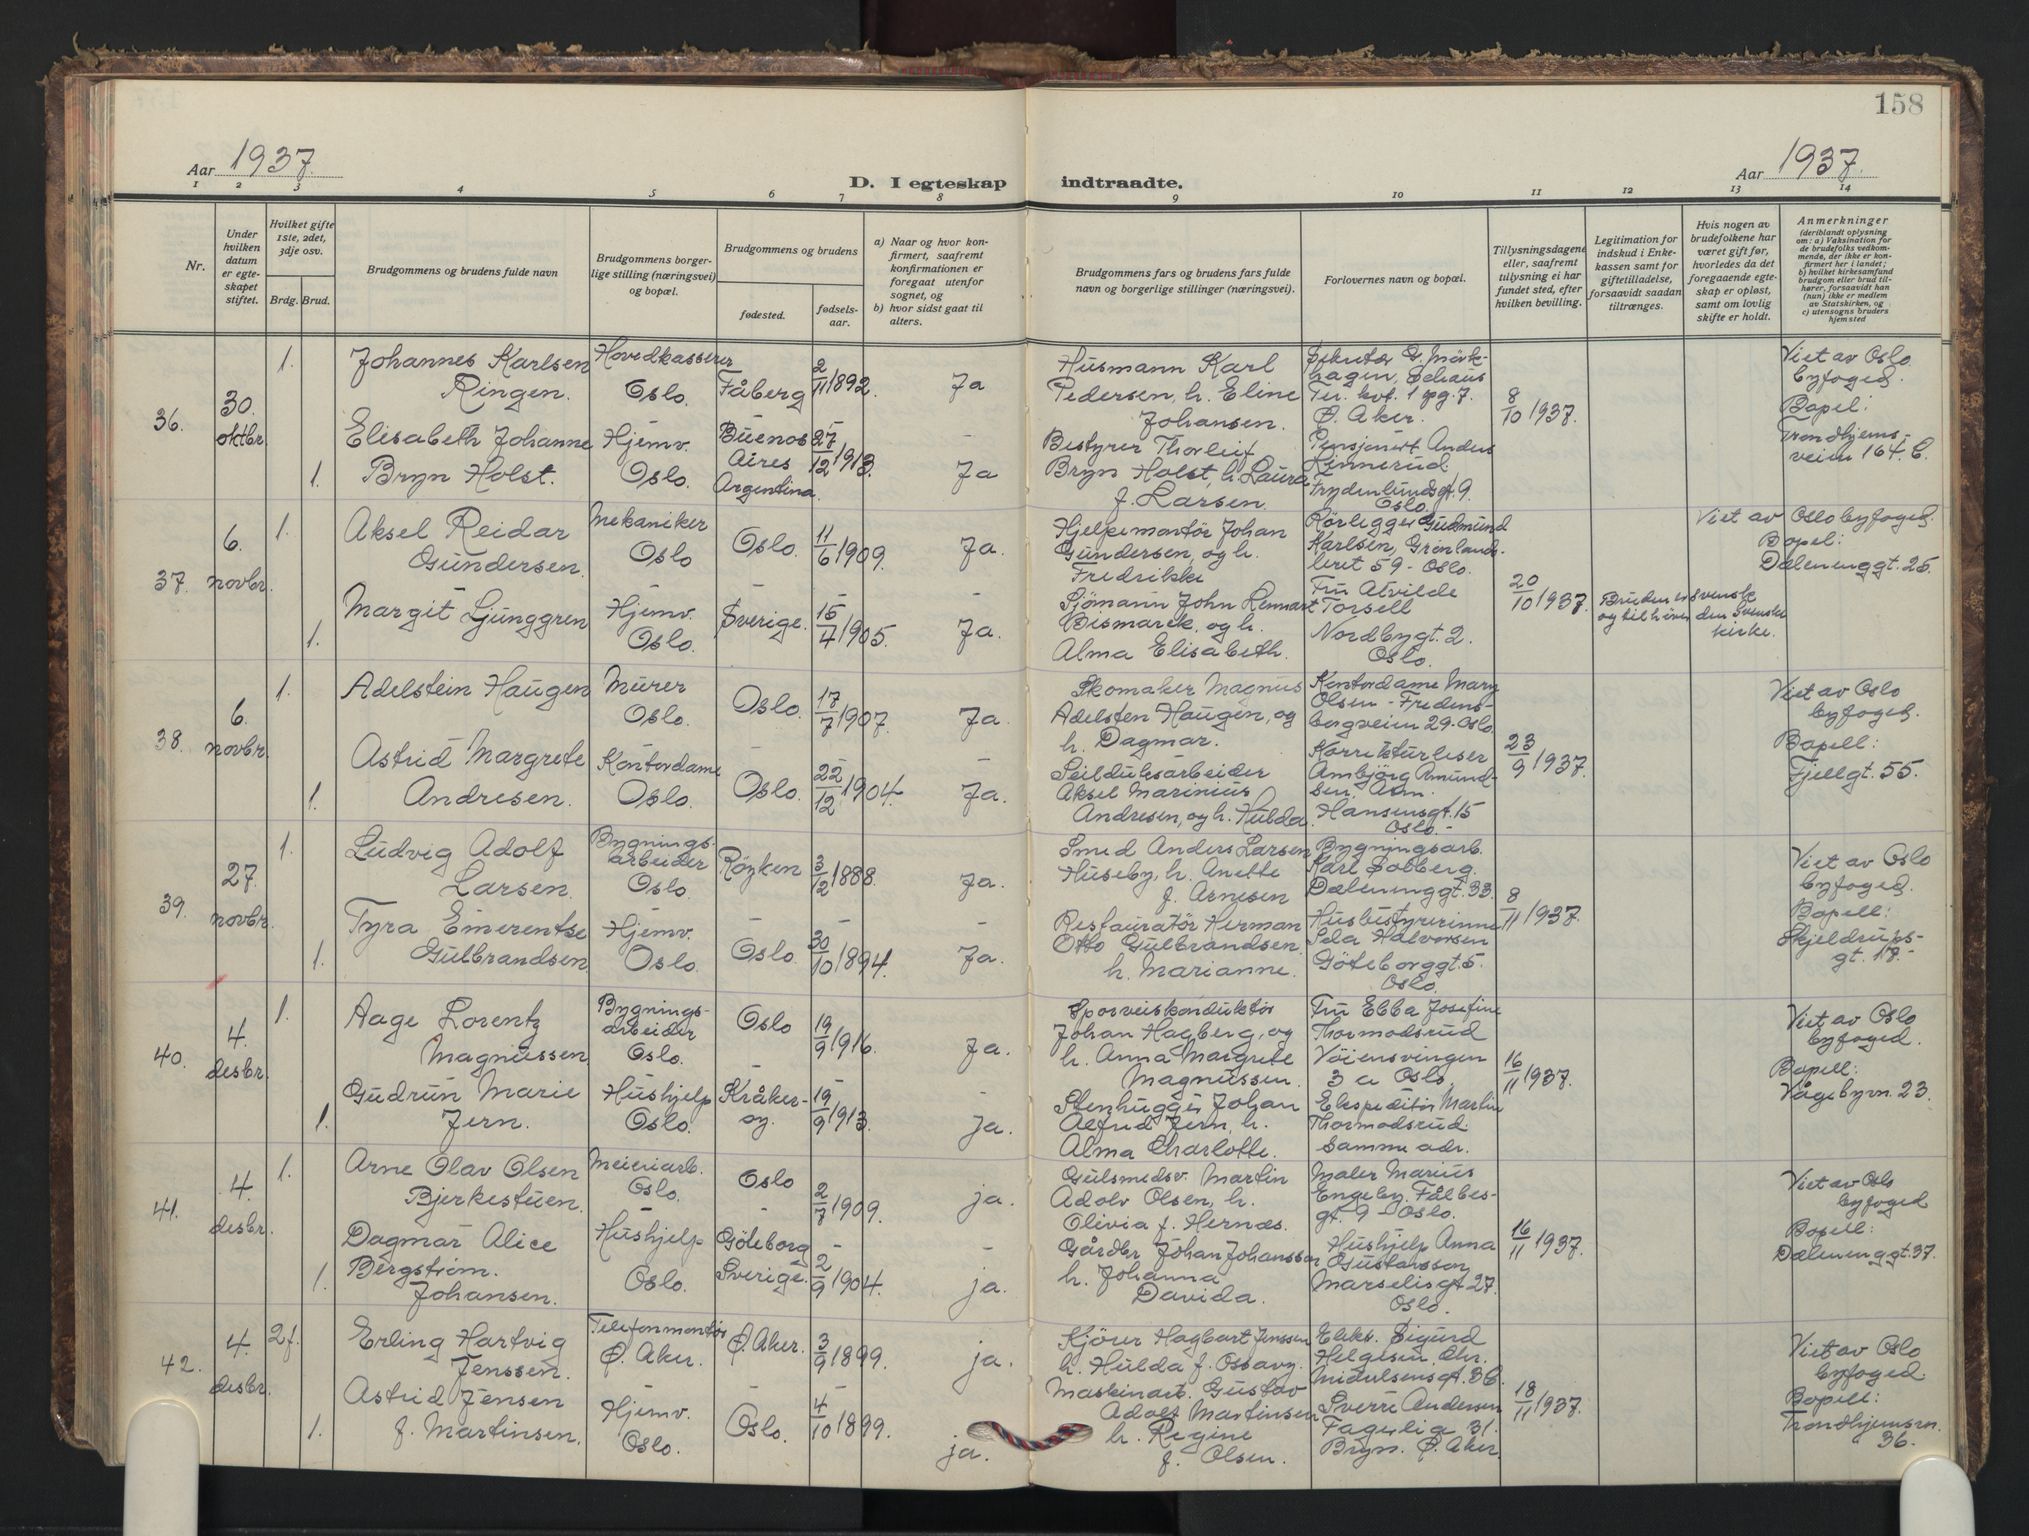 158
Aar 1937.
D. I egteskap indtraadte.
Aar 1937.
1 2 3 4 5 6 7 8 9 10 11 12 13 14
Nr.
Under
hvilken
datum
er egte-
skapet
stiftet.
Hvilket gifte
1ste, 2det,
3dje osv.
Brdg. Brud.
Brudgommens og brudens fulde navn
Brudgommens borger-
lige stilling (næringsvei)
og bopæl.
Brudgommens og brudens
fødested.
fødsels-
aar.
a) Naar og hvor kon-
firmert, saafremt
konfirmationen er
foregaat utenfor
sognet, og
b) hvor sidst gaat til
alters.
Brudgommens fars og brudens fars fulde
navn og borgerlige stillinger (næringsvei).
Forlovernes navn og bopæl.
Tillysningsdagene
eller, saafremt
tillysning ei har
fundet sted, efter
hvilken bevilling.
Legitimation for
indskud i Enke-
kassen samt for
giftetilladelse,
forsaavidt saadan
tiltrænges.
Hvis nogen av
brudefolkene har
været gift før,
hvorledes da det
foregaaende egte-
skap er opløst,
samt om lovlig
skifte er holdt.
Anmerkninger
(deriblandt oplysning
om: a) Vaksination for
de brudefolks vedkom-
mende, der ikke er kon-
firmert her i landet;
b) hvilket kirkesamfund
brudgom eller brud til-
hører, forsaavidt han
(hun) ikke er medlem
av Statskirken, og
c) utensogns bruders
hjemsted
36.
30.
oktbr.
1.
Johannes Karlsen
Ringen.
Hovedkasserer
Oslo.
Fåberg
2/11 1892.
Ja
Husmann Karl
Pedersen, h. Eline
Johansen.
Sekretær G. Mörk-
hagen, Schaus
Ter. kvt. 1 opg. 7.
Ø. Aker.
8/10 1937.
Viet av Oslo
byfoged.
Bopel:
Trondhjems-
veien 164. C.
1.
Elisabeth Johanne
Bryn Holst.
Hjemv.
Oslo.
Buenos
Aires
Argentina.
27/12 1913.
Ja
Bestyrer Thorleif
Bryn Holst, h. Laura
f. Larsen.
Pensjonert Anders
Kinnerud.
Frydenlundsgt. 9.
Oslo.
37.
6.
novbr.
1.
Aksel Reidar
Gundersen.
Mekaniker
Oslo
Oslo.
11/6 1909.
Ja.
Hjelpemontör Johan
Gundersen, og h.
Fredrikke
Rörlegger Gudmund
Karlsen, Grönlands-
leret 59 - Oslo.
20/10 1937.
Viet av Oslo byfoged.
Bopel:
Dælenenggt. 25.
1.
Margit Ljunggren
Hjemv.
Oslo.
Sverige.
15/4 1905.
Ja.
Sjömann John Lennart
Bismarck, og h.
Alma Elisabeth.
Fru Alvilde
Torsell
Nordbygt. 2.
Oslo.
Bruden er svensk
og tilhörer den svenske
kirke.
38.
6.
novbr.
1.
Adelstein Haugen
Murer
Oslo.
Oslo.
17/7 1907.
Ja.
Skomaker Magnus
Adelsten Haugen, og
h. Dagmar.
Kontordame Mary
Olsen - Fredens-
borgveien 29. Oslo.
23/9 1937.
Viet av Oslo
byfoged.
Bopell:
Fjellgt. 55.
1.
Astrid Margrete
Andresen.
Kontordame
Oslo.
Oslo.
22/12 1904.
Ja.
Seilduksarbeider
Aksel Marinius
Andresen, og h. Hulda
Korrekturleser
Ambjörg Amund-
sen,
Hansensgt. 15
Oslo.-
39.
27.
novbr.
1.
Ludvig Adolf
Larsen.
Bygnings-
arbeider
Oslo.
Röyken
3/12 1888.
Ja.
Smed Anders Larsen
Huseby, h. Anette
f. Arnesen
Bygningsarb.
Karl Solberg.
Dælenenggt. 33.
8/11 1937.
Viet av Oslo
byfoged.
Bopell:
Skjeldrups-
gt. 17.-
1.
Tyra Emerentse
Gulbrandsen
Hjemv.
Oslo.
Oslo.
30/10 1894.
Ja.
Restauratör Herman
Otto Gulbrandsen
h. Marianne.
Husbestyrerinne
Halvorsen
Göteborggt. 5.
Oslo.
40.
4.
desbr.
1.
Aage Lorentz
Magnussen
Bygnings-
arbeider
Oslo.
Oslo
19/9 1916.
Ja.
Sporveiskonduktör
Johan Hagberg, og
h. Anna Margrete
Magnussen.
Fru Ebba Josefine
Thormodsrud
Vöiensvingen
3 a Oslo.
16/11 1937.
Viet av Oslo
byfoged.
Bopell:
Vågebyvn. 23.
1.
Gudrun Marie
Jern.
Hushjelp
Oslo.
Kråker-
öy.
19/9 1913.
ja.
Stenhugger Johan
Alfred Jern, h.
Alma Charlotte.
Ekspeditör Martin
Thormodsrud.
Samme adr.
41.
4.
desbr.
1.
Arne Olav Olsen
Bjerkestuen.
Meieriarb.
Oslo.
Oslo
2/7 1909.
ja.
Gulsmedsv. Martin
Adolv Olsen, h.
Olivia f. Hernæs.
Maler Marius
Engeby. Fålbes-
gt. 9 - Oslo.
16/11 1937.
Viet av Oslo
byfoged
Bopell:
Dælenenggt. 37.
1.
Dagmar Alice
Bergström.
Johansen.
Hushjelp
Oslo.
Göteborg
Sverige.
2/9 1904.
ja.
Gårdbr Johan Johansson
h. Johanna
Davida.
Hushjelp Anna
Gustavsson
Marselisgt 27.
Oslo.
42.
4.
desbr.
2f.
Erling Hartvig
Jenssen.
Telefonmontör
Ø. Aker.
Ø. Aker.
3/9 1899.
ja.
Kjörer Hagbart Jenssen
h. Hulda f. Ossavy.
Eleks. Sigurd
Helgesen. Chr.
Mickelsensgt. 36.
18/11 1937.
Viet av Oslo
byfoged.
Bopell:
Trondhjemsvn.
36.
1.
Astrid Jensen
f. Martinsen.
Hjemv.
Oslo.
Oslo.
4/10 1899.
ja.
Maskinarb. Gustav
Adolf Martinsen
h. Regine
f. Olsen.
Sverre Andersen
Fagerlia 31.
Bryn. Ø. Aker.